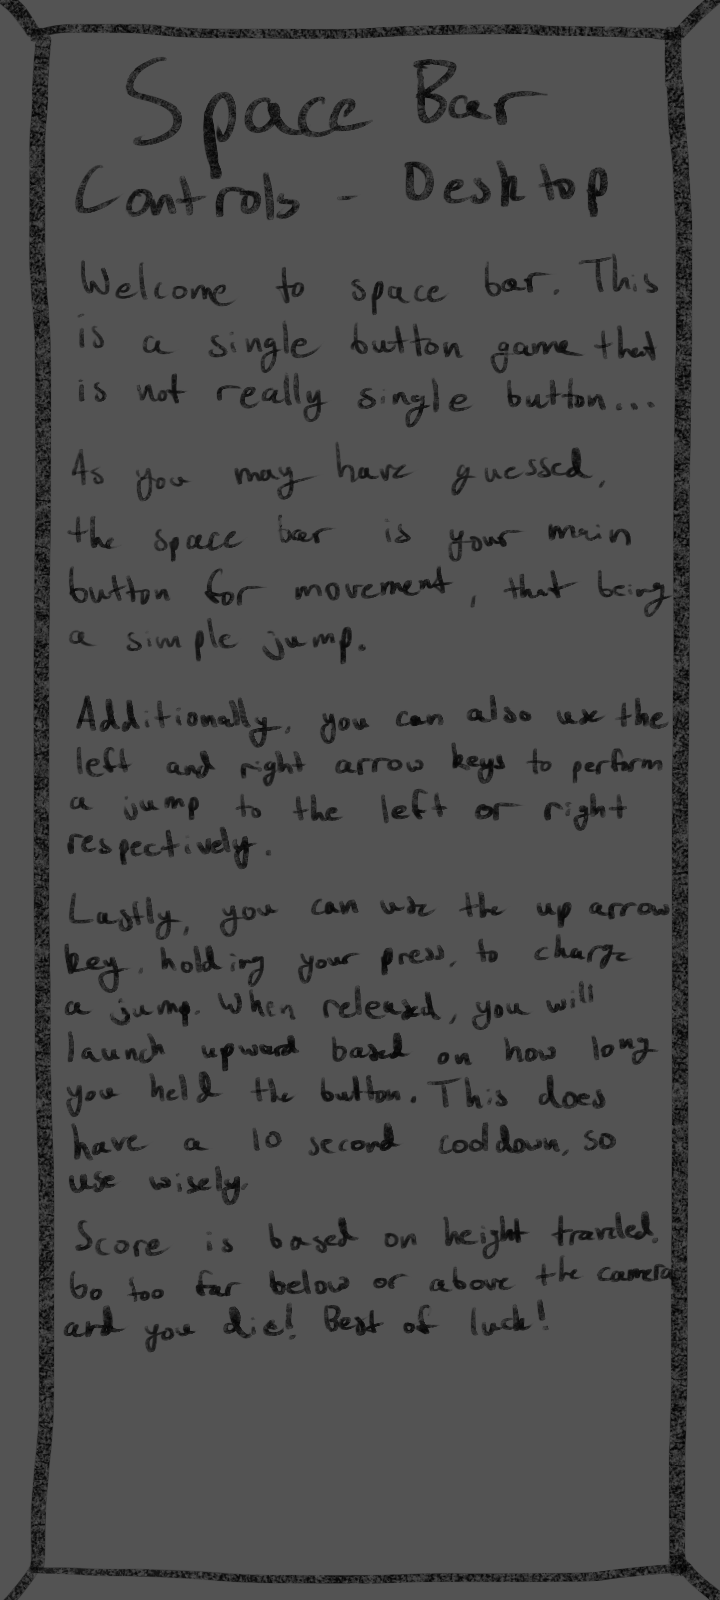 Space Bar
Controls - Desktop
Welcome to space bar. This
is a single button game that
is not really single button...
As you may have guessed,
the space bar is your main
button for movement, that being
a simple jump.
Additionally, you can also use the
left and right arrow keys to perform
a jump to the left or right
respectively.
Lastly, you can use the up arrow
key, holding your press, to charge
a jump. When released, you will
launch upward based on how long
you held the button. This does
have a 10 second cooldown, so
use wisely.
Score is based on height traveled.
Go too far below or above the camera
and you die! Best of luck!